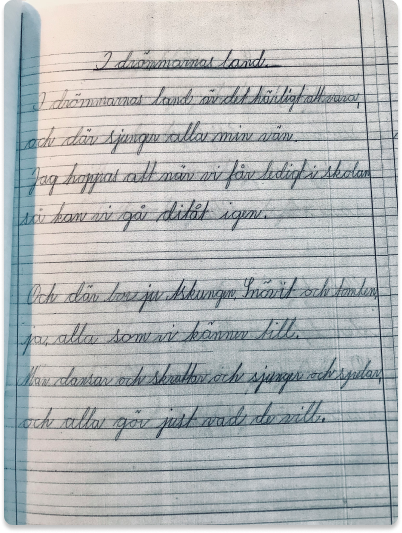 I drömmarnas land.
I drömmarnas land är det härligt att vara,
och där sjunger alla min vän.
Jag hoppas att när vi får ledigt i skolan
så kan vi gå ditåt igen.
Och där bor ju Askungen, Snövit och tomten,
ja, alla som vi känner till.
Man dansar och skrattar och sjunger och spelar,
och alla gör just vad de vill.